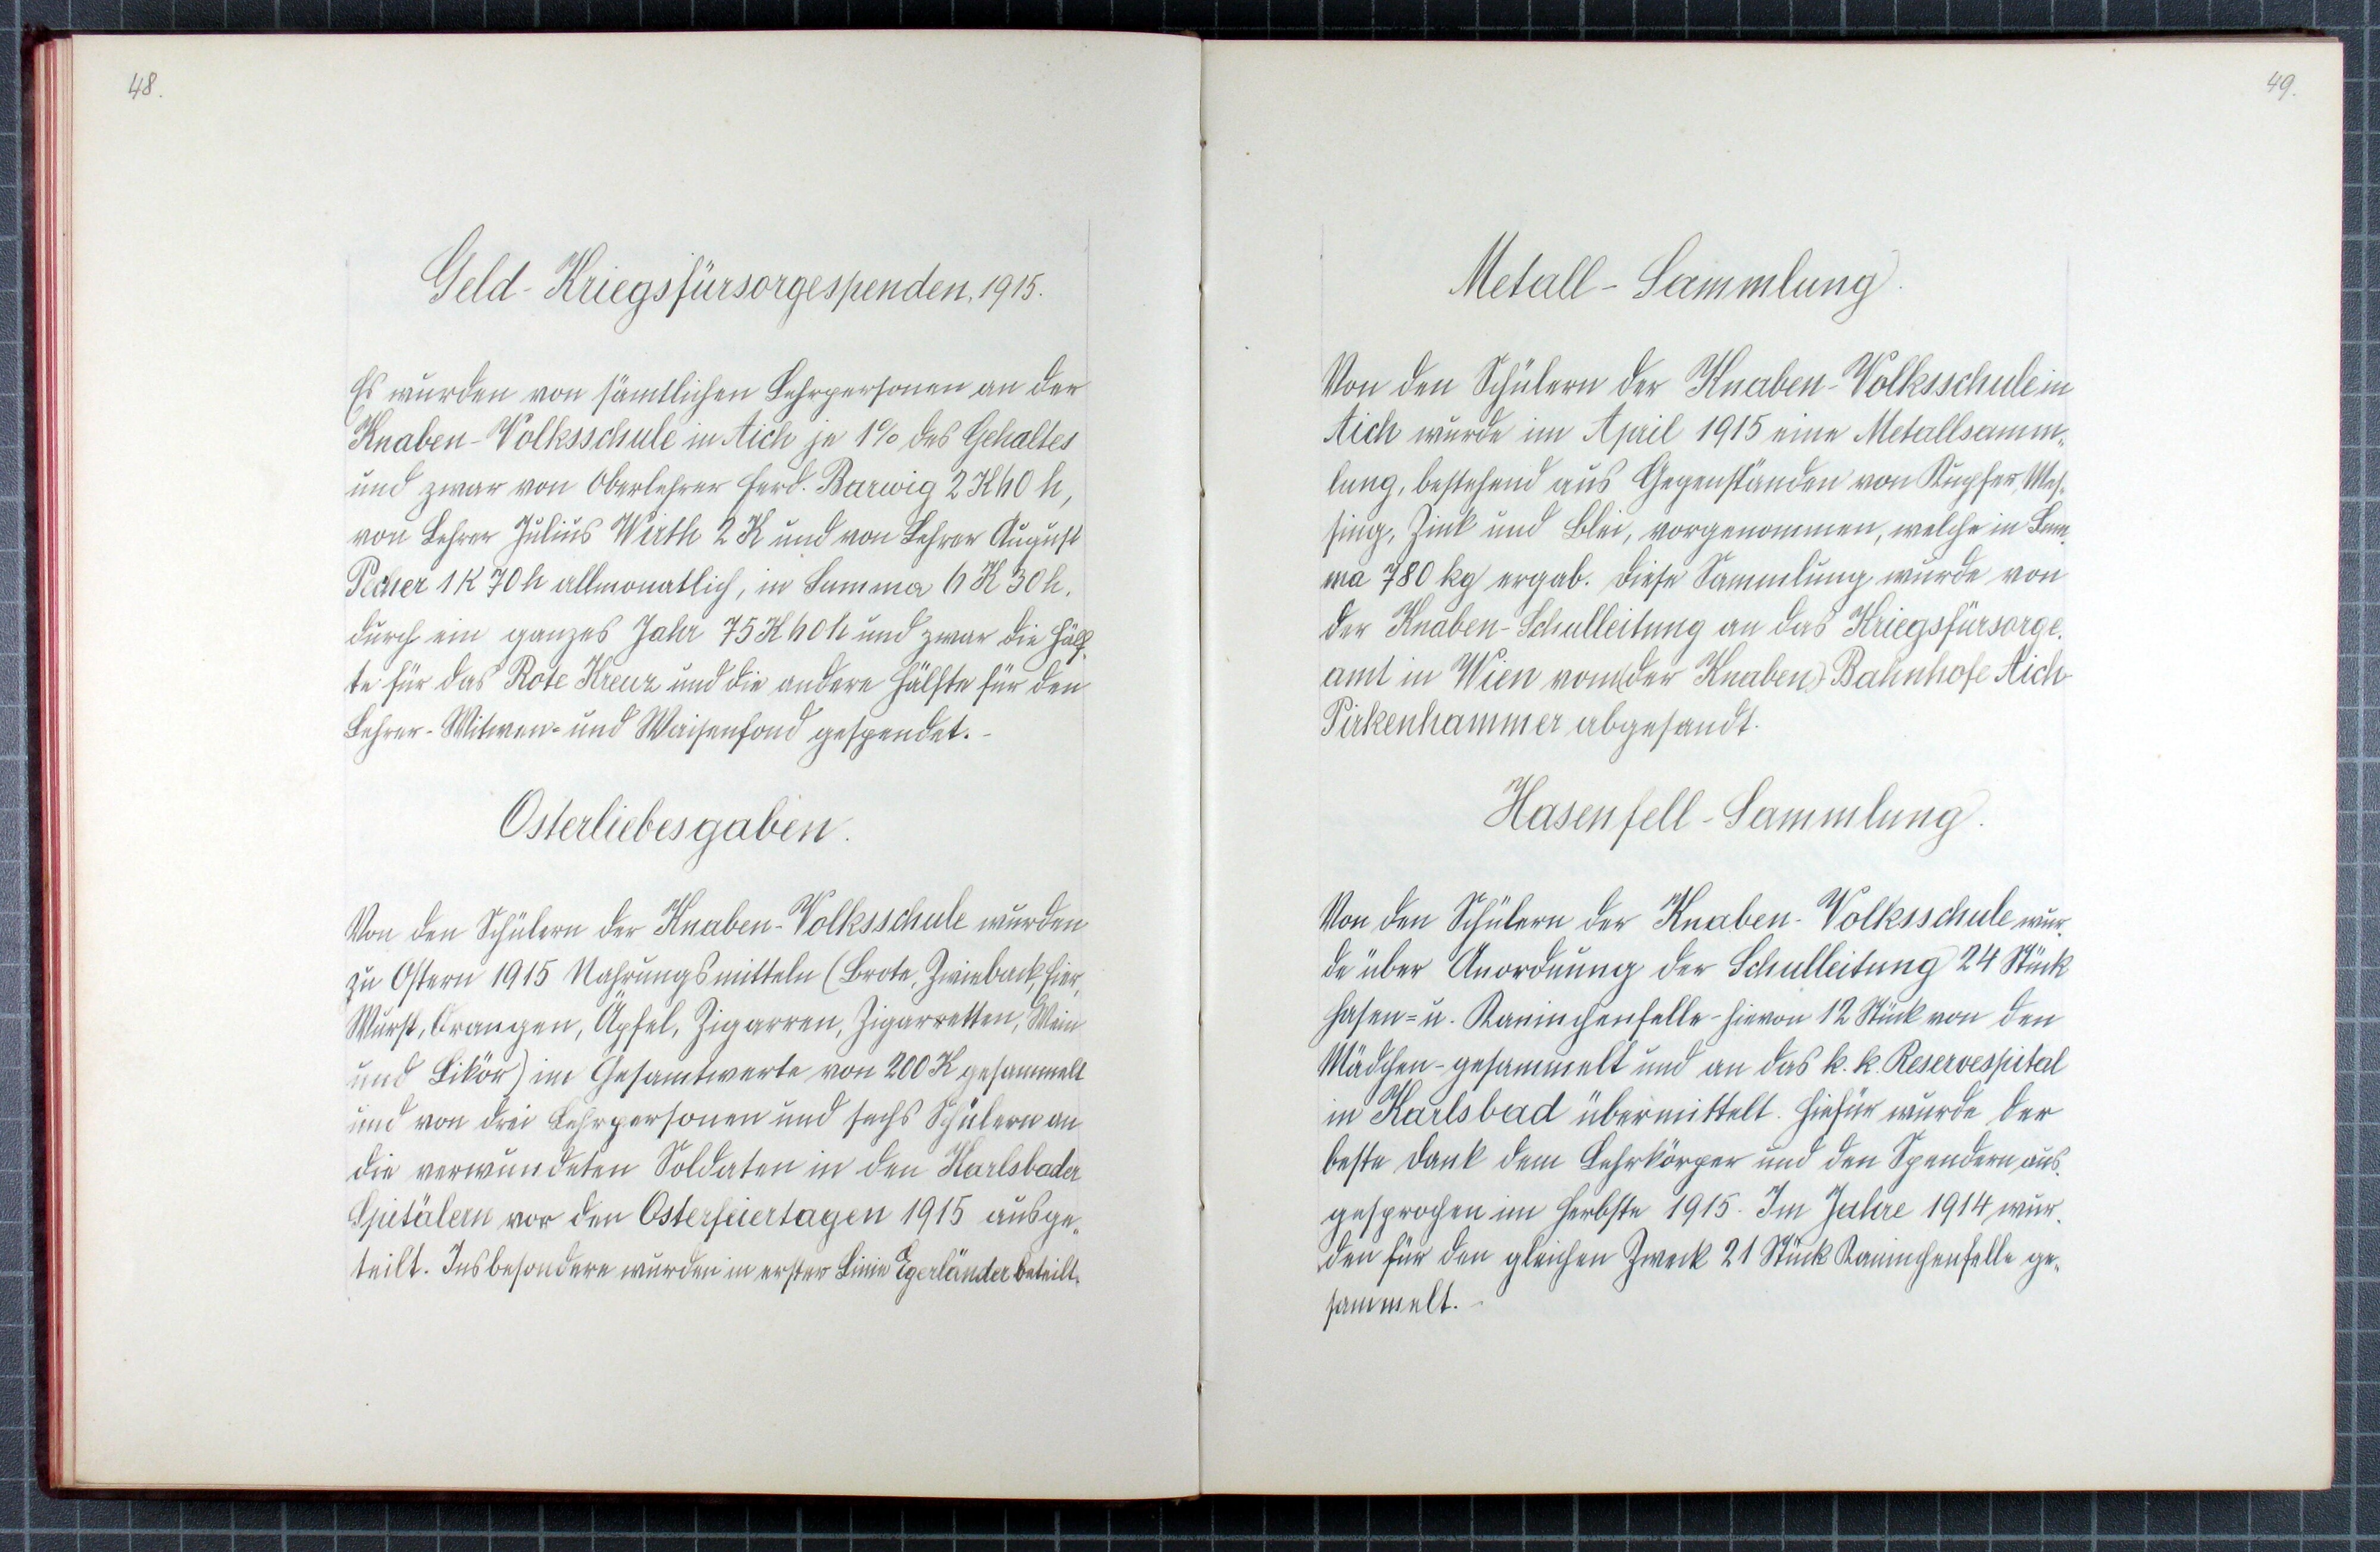 48.
Geld-Kriegsfürsorgespenden, 1915.
Es wurden von sämtlichen Lehrpersonen an der
Knaben-Volksschule in Aich je 1% des Gehaltes
und zwar von Oberlehrer Ferd. Barwig 2 K 60 h,
von Lehrer Julius Wirth 2 K und von Lehrer August
Pecher 1 K 70 h allmonatlich, in Summa 6 K 30 h,
durch ein ganzes Jahr 75 K 60 h und zwar die Hälf-
te für das Rote Kreuz und die andere Hälfte für den
Lehrer-Witwen- und Waisenfond gespendet.-
Osterliebesgaben.
Von den Schülern der Knaben-Volksschule wurden
zu Ostern 1915 Nahrungsmitteln (Brote, Zwieback, Eier,
Wurst, Orangen, Äpfel, Zigarren, Zigarretten, Wein
und Likör) im Gesamtwerte von 200 K gesammelt
und von drei Lehrpersonen und sechs Schülern an
die verwundeten Soldaten in den Karlsbader
Spitälern vor den Osterfeiertagen 1915 ausge-
teilt. Insbesondere wurden in erster Linie Egerländer beteilt.
49.
Metall-Sammlung.
Von den Schülern der Knaben-Volksschule in
Aich wurde im April 1915 eine Metallsamm-
lung, bestehend aus Gegenständen von Kupfer, Mes-
sing, Zink und Blei, vorgenommen, welche in Sum-
ma 780 kg ergab. Diese Sammlung wurde von
der Knaben-Schulleitung an das Kriegsfürsorge-
amt in Wien vom (der Knaben) Bahnhofe Aich-
Pirkenhammer abgesandt.
Hasenfell-Sammlung.
Von den Schülern der Knaben-Volksschule wur-
de über Anordnung der Schulleitung 24 Stück
Hasen- u. Kaninchenfelle - hievon 12 Stück von den
Mädchen - gesammelt und an das k. k. Reservespital
in Karlsbad übermittelt. Hiefür wurde der
beste Dank dem Lehrkörper und den Spendern aus-
gesprochen im Herbste 1915. Im Jahre 1914 wur-
den für den gleichen Zweck 21 Stück Kaninchenfelle ge-
sammelt.-